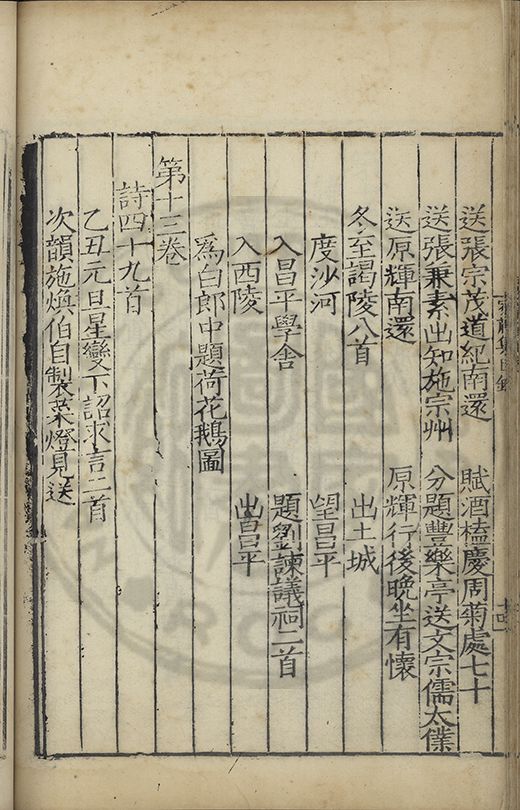 送張宗茂道紀南還　賦酒榼慶周菊處七十
送張秉素出知施宗州　分題豐樂亭送文宗儒太僕
送原輝南還　原輝行後晚坐有懷
冬至謁陵八首　出土城
度沙河　望昌平
入昌平學舍　題劉諫議祠二首
入西陵　出昌平
爲白郎中題荷花鵝圖
第十三卷
詩四十九首
乙丑元日星變下詔求言二首
次韻施煥伯自製菜燈見送